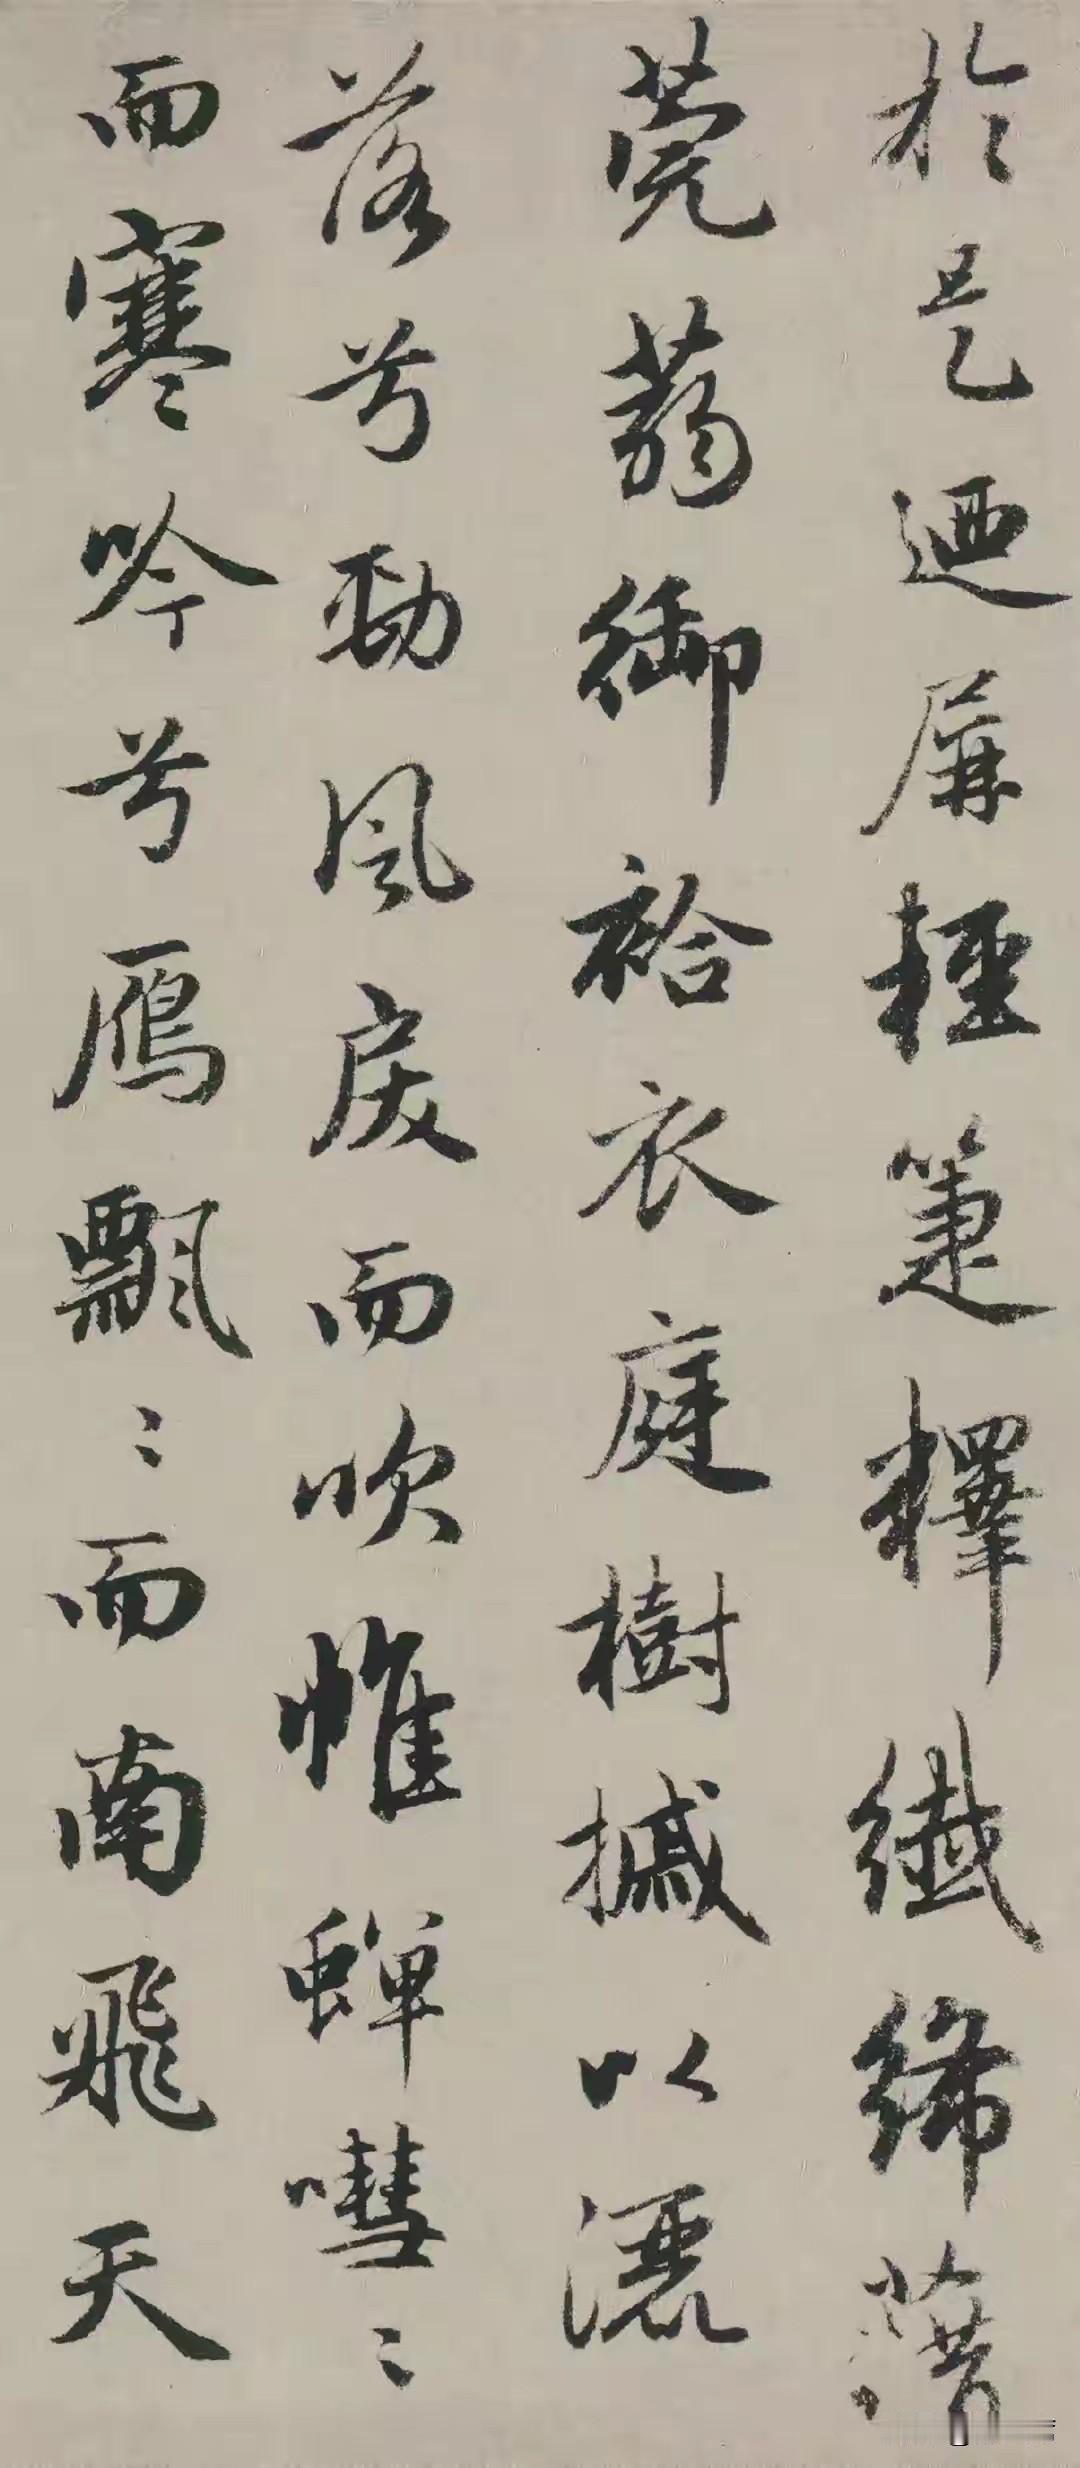 於是迺屏輕箑釋纖絺藉
莞蒻御袷衣庭樹槭以灑
落兮勁風戾而吹帷蟬嘒〻
而寒吟兮鴈飄〻而南飛天